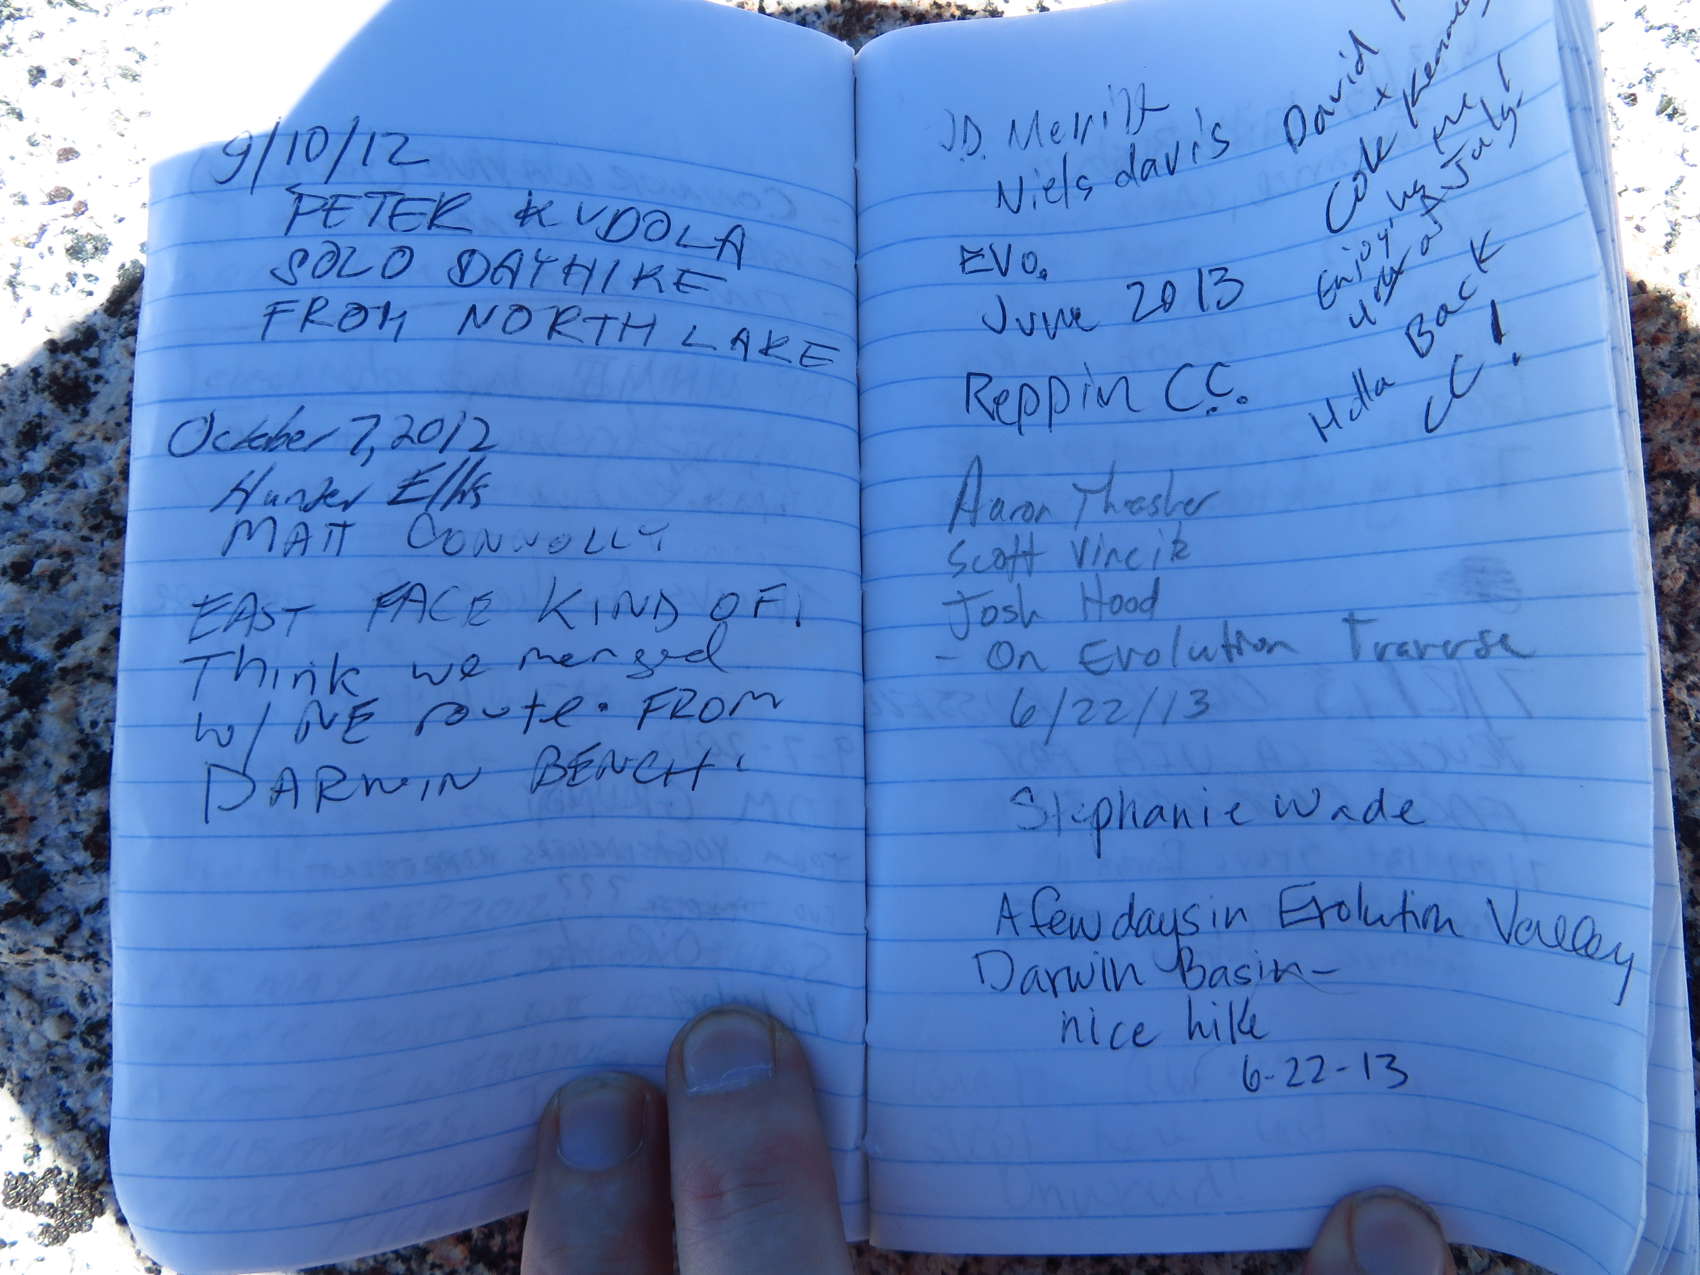 9/10/12
PETER KUDOLA
SOLO DAYHIKE
FROM NORTH LAKE
October 7, 2012
Hunter Ellis
MATT CONNOLLY
EAST FACE KIND OF!
Think we merged
w/ NE route. FROM
DARWIN BENCH.
J.D. Merritt
Niels davis
EVO.
June 2013
Reppin C.C.
David
Cole
Enjoying the
4th of July
Holla Back
CC!
Aaron Thrasher
Scott Vincik
Josh Hood
- On Evolution Traverse
6/22/13
Stephanie Wade
A few days in Evolution Valley
Darwin Basin-
nice hike
6-22-13